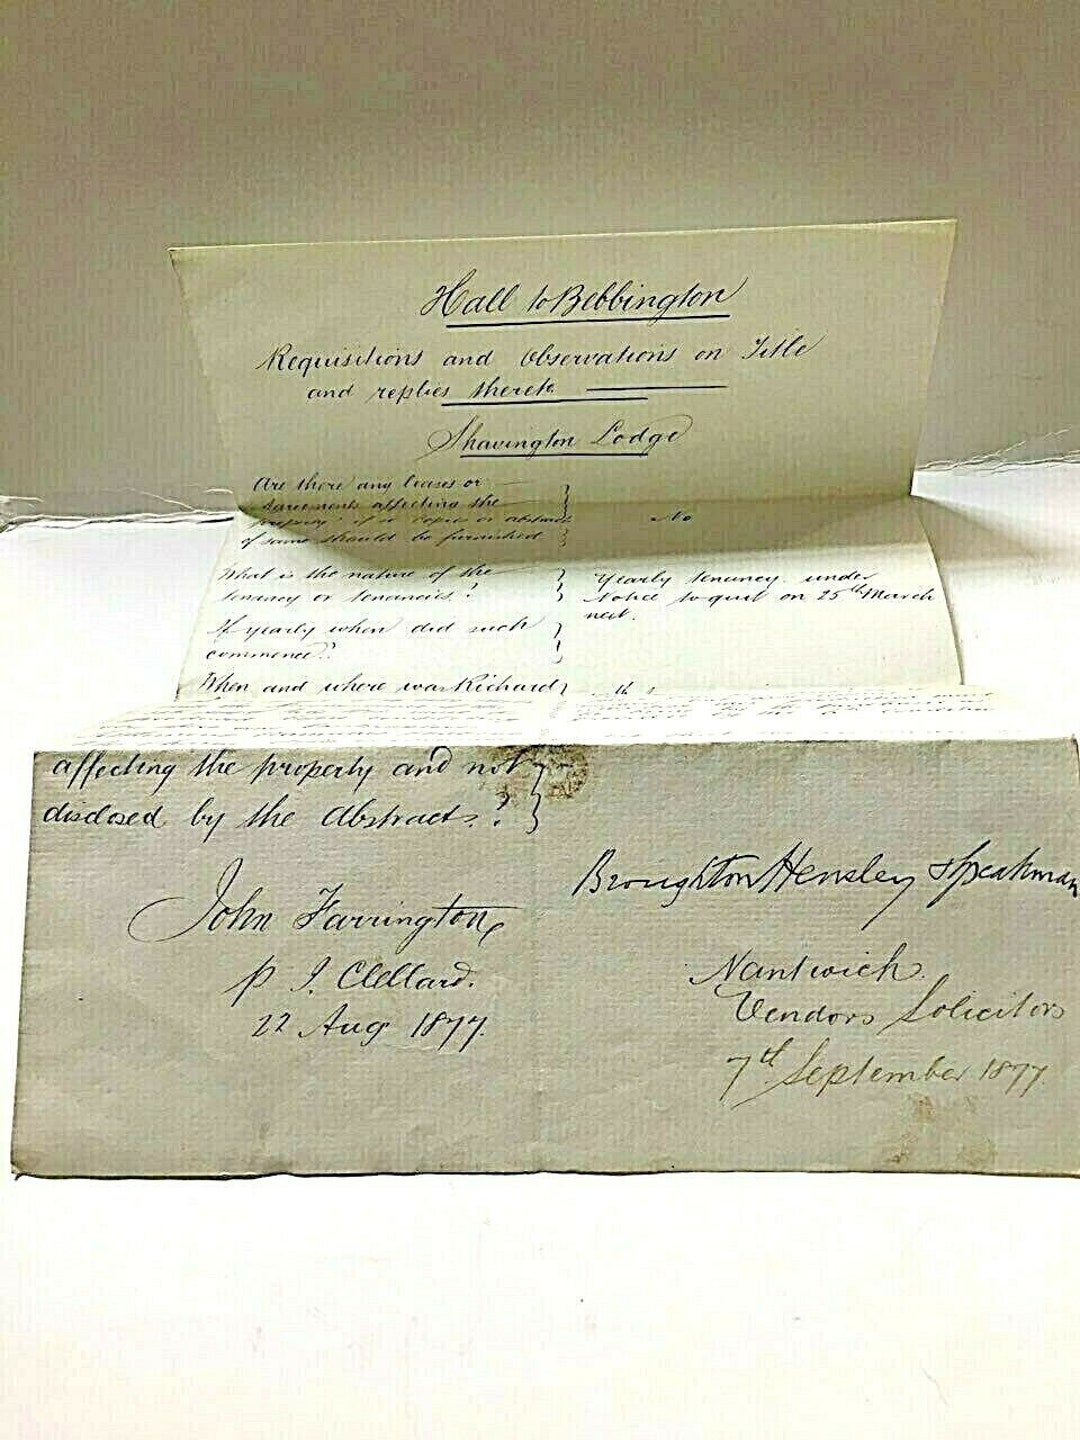 Hall to Bebbington
Requisitions and Observations on Title
and replies thereto
Shavington Lodge
Are there any leases or
Agreements affecting the
property? if so copies or abstracts
of same should be furnished
No
What is the nature of the
tenancy or tenancies?
Yearly tenancy under
Notice to quit on 25th March
next.
If yearly when did such
commence?
When and where was Richard
affecting the property and not
disclosed by the Abstracts?
John Farrington,
p J. Clellard.
22 Aug 1877.
Broughton Hensley & Speakman
Nantwich.
Vendors Solicitors
7th September 1877